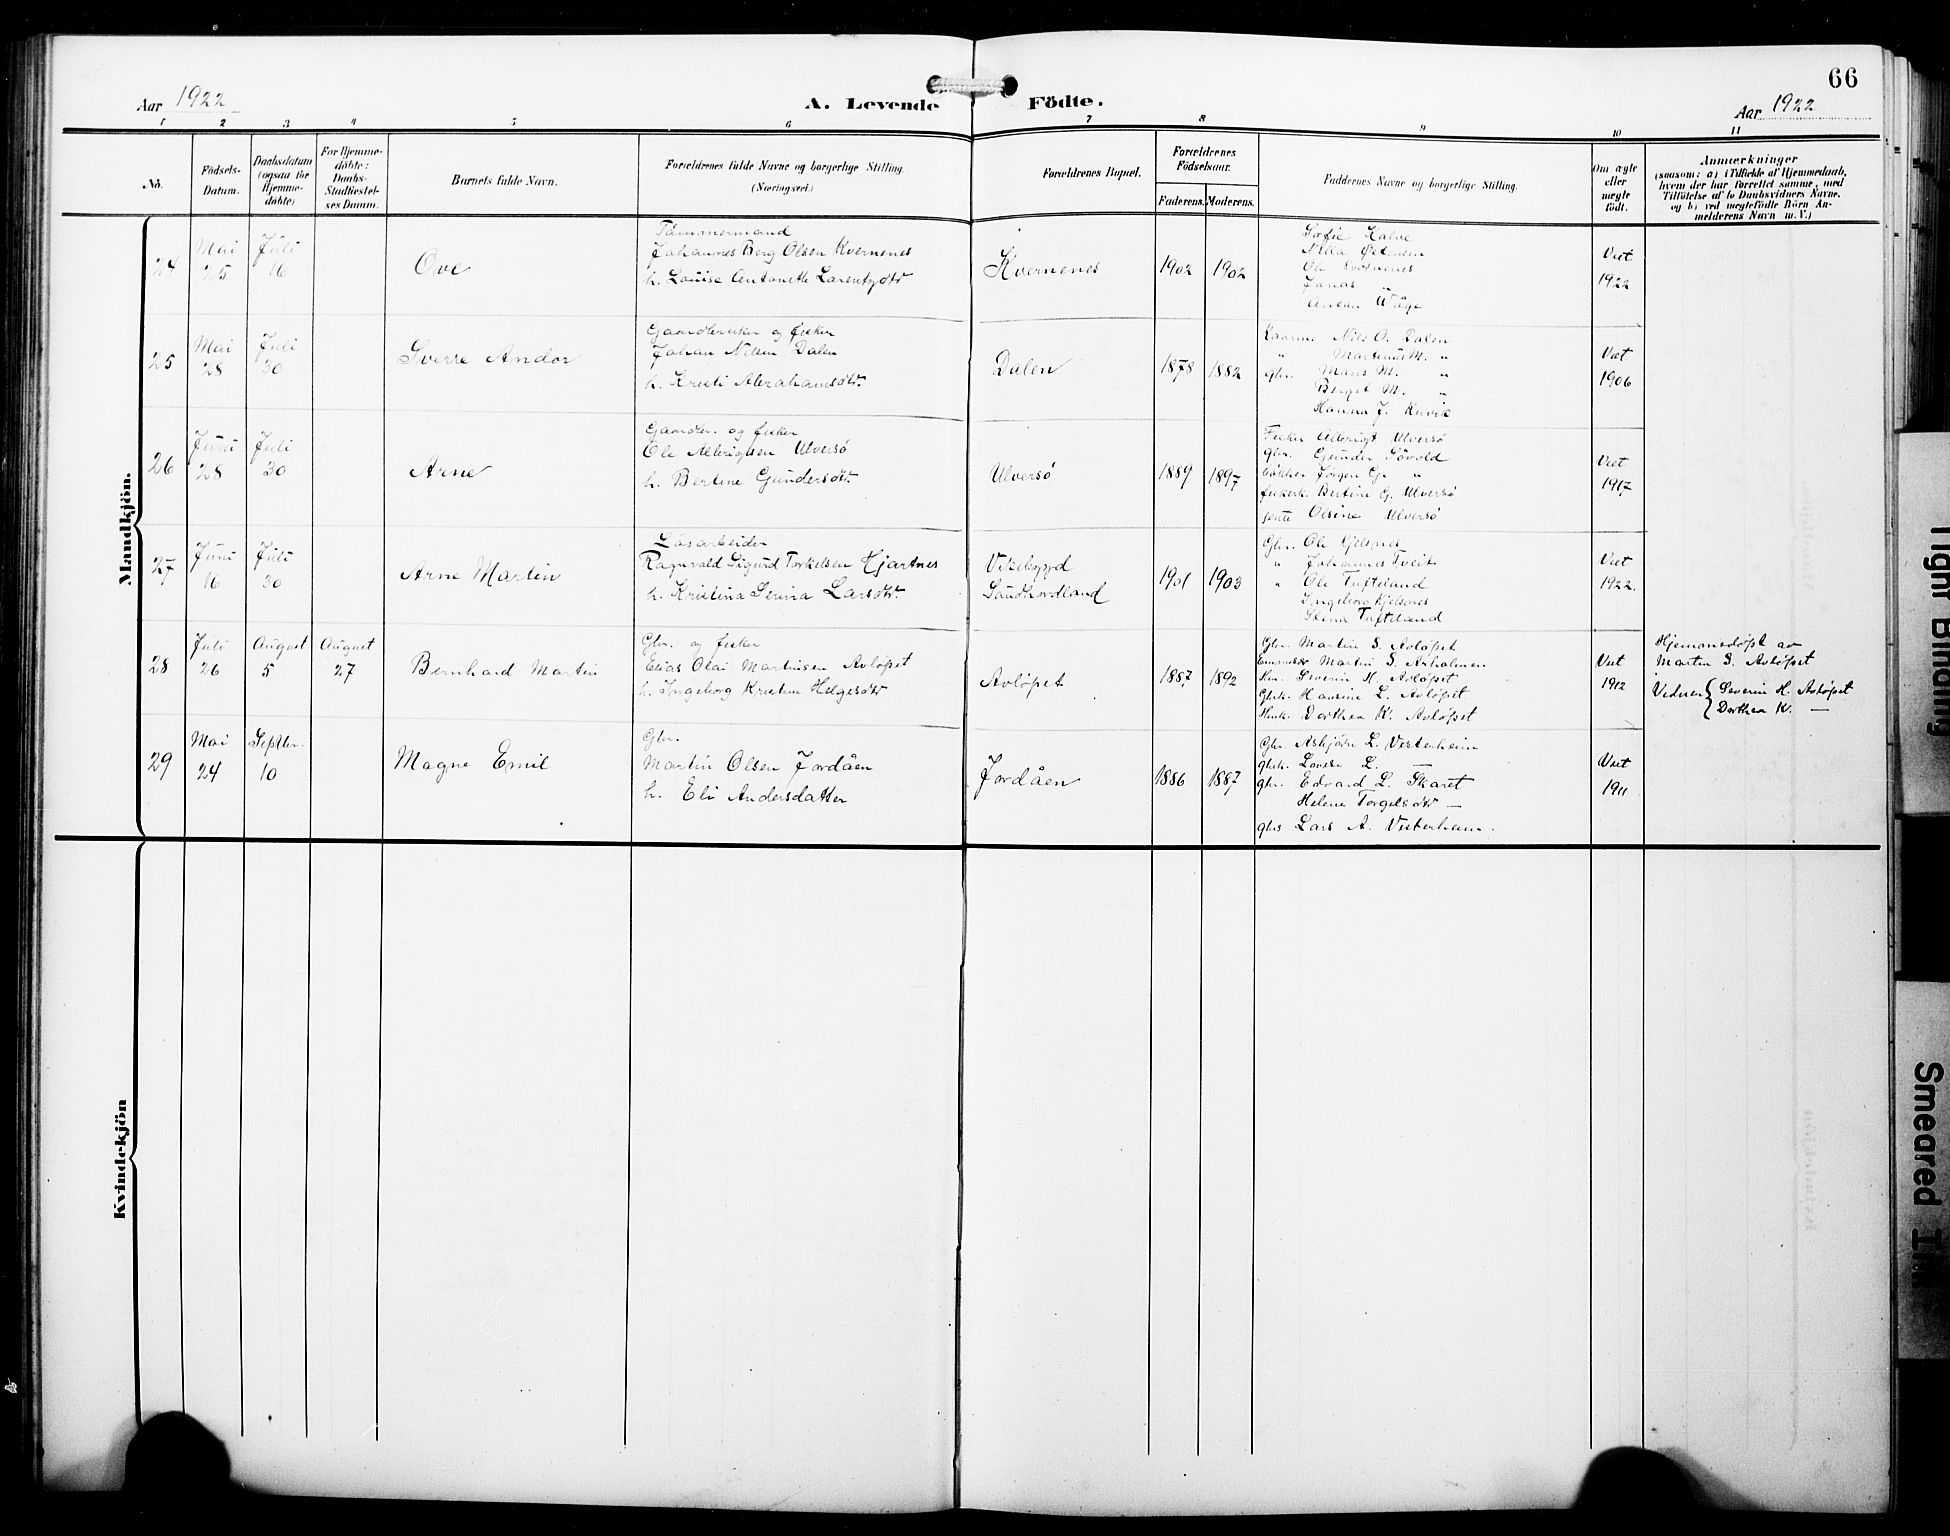 66
Aar 1922
A. Levende Födte.
Aar 1922
1 2 3 4 5 6 7 8 9 10 11
No.
Födsels-
Datum.
Daabsdatum
(ogsaa for
Hjemme-
döbte)
For Hjemme-
döbte:
Daabs-
Stadfæstel-
ses Datum.
Barnets fulde Navn.
Forældrenes fulde Navne og borgerlige Stilling.
(Næringsvei.)
Forældrenes Bopæl.
Forældrenes
Födselsaar.
Faderens.
Moderens.
Faddernes Navne og borgerlige Stilling.
Om ægte
eller
uægte
födt.
Anmærkninger
(saasom: a) i Tilfælde af Hjemmedaab,
hvem der har forrettet samme, med
Tilföielse af to Daabsvidners Navne,
og b) ved uægtefödte Börn An-
melderens Navn m. V.)
Mandkjön.
24
Mai
25
Juli
16
Ove
Tömmermand
Johannes Berg Olsen Kvernenes
h. Louise Antonette Larentzdtr
Kvernenes
1902
1902
Sofie Kalve
Ole Kvernenes
Jonas "
Våge
Viet
1922
25
Mai
28
Juli
30
Sverre Andor
Gaardbruker og fisker
Johan Nilsen Dalen
h. Kristi Abrahamsdtr.
Dalen
1878
1882
Kaarm. Nils O. Dalen
" Martinus M. "
gbr. Mons M. "
Berget M. "
Hanna J. Kuvik
Viet
1906
26
Juni
28
Juli
30
Arne
Gaardbr. og fisker
Ole Albrigtsen Ulversö
h. Bertine Gundersdtr.
Ulversö
1889
1897
Fisker Albrigt Ulversö
gbr. Gunder Sövold
bökker Jörgen G. "
fiskerk. Bertine G. Ulversö
jente Olsine Ulversö
Viet
1917
27
Juni
16
Juli
30
Arne Martin
Lösarbeider
Ragnvald Sigurd Torkelsen Hjartnes
h. Kristina Serina Larsdtr.
Vikebygd
Søndhordland
1901
1903
Gbr. Ole Hjelsnes
" Johannes Tveit
" Ole Tufteland
Ingeborg Hjelsnes
Stina Tufteland
Viet
1922.
28
Juli
26
August
5
August
27
Bernhard Martin
Gbr. og fisker
Elias Olai Martinsen Avløpet
h. Ingeborg Kristine Helgesdtr
Avløpet
1887
1892
Gbr. Martin S. Avløpet
Martin S. Arholmen
Severin H. Avløpet
Gbrk. Hansine L. Avløpet
Dorthea K. Avløpet
Viet
1912
Hjemmedøpt av
Martin S. Avløpet
Vidner { Severin H. Avløpet
Dorthea K. —
29
Mai
24
Septbr.
10
Magne Emil
Gbr.
Martin Olsen Jordåen
h. Eli Andersdatter
Jordåen
1886
1887
Gbr. Asbjörn L. Vesterheim
gbrk. Lovise L. —
gbr. Edvard L. Skaret
Helene Torgelsdtr —
gbrs Lars A. Vesterheim.
Viet
1911
Kvindekjön
Tight Binding
Smeared Ink